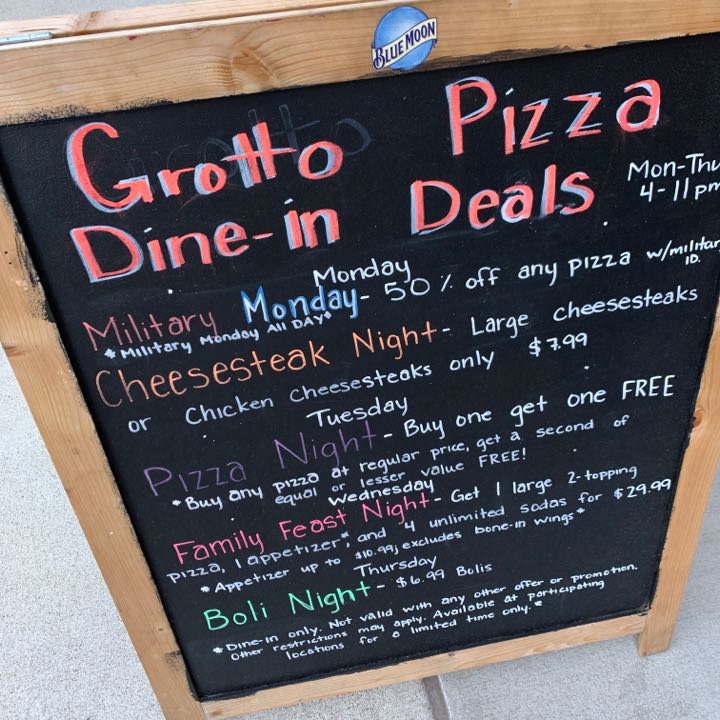 BLUE MOON
Grotto Pizza
Dine-in Deals
Mon-Thu
4-11pm
Monday
Military Monday - 50% off any pizza w/military
ID.
*Military Monday All DAY*
Cheesesteak Night - Large cheesesteaks
or Chicken cheesesteaks only $7.99
Tuesday
Pizza Night - Buy one get one FREE
*Buy any pizza at regular price, get a second of
equal or lesser value FREE!
Wednesday
Family Feast Night - Get 1 large 2-topping
pizza, 1 appetizer*, and 4 unlimited sodas for $29.99
*Appetizer up to $10.99, excludes bone-in wings*
Thursday
Boli Night - $6.99 Bolis
*Dine-in only. Not valid with any other offer or promotion.
Other restrictions may apply. Available at participating
locations for a limited time only.*